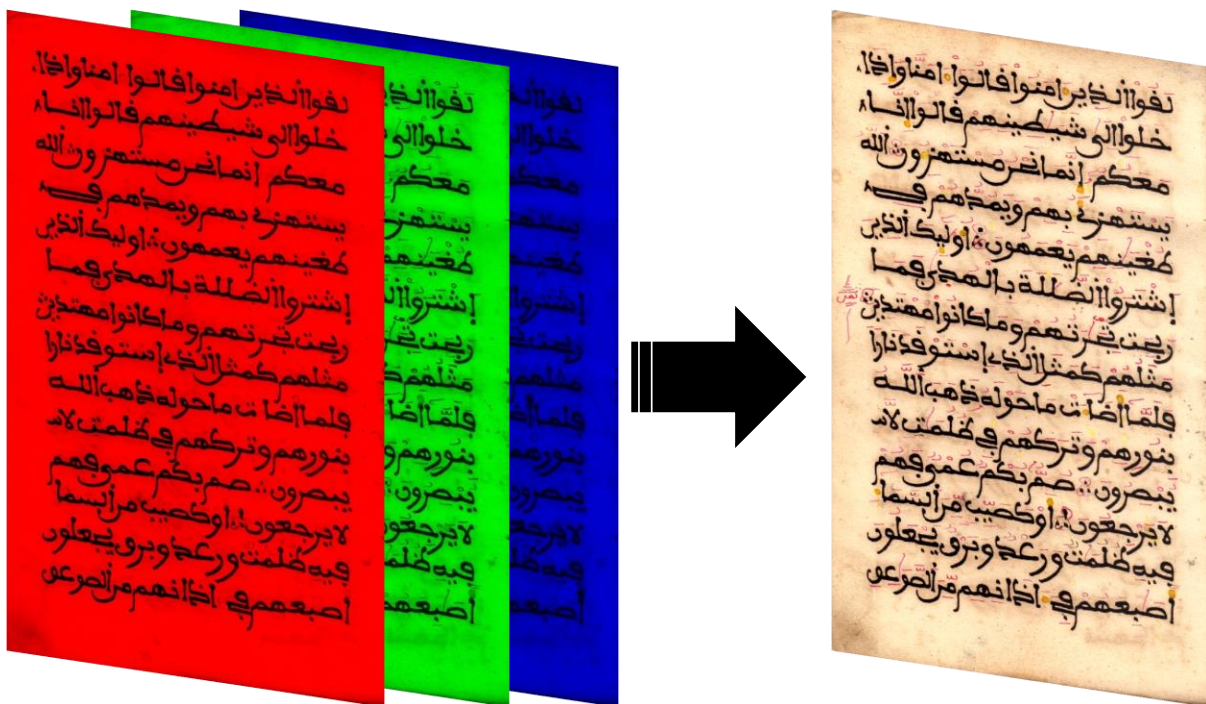 لقوا الذين امنوا قالوا امنا واذا
خلوا الى شيطينهم قالوا انا
معكم إنما نحن مستهزون الله
يستهزئ بهم ويمدهم في
طغينهم يعمهون اوليك الذين
إشتروا الضللة بالهدى فما
ربحت تجرتهم وما كانوا مهتدين
مثلهم كمثل الذى إستوقد نارا
فلما اضات ما حوله ذهب الله
بنورهم وتركهم في ظلمت لا
يبصرون صم بكم عمي فهم
لا يرجعون أو كصيب من السما
فيه ظلمت ورعد وبرق يجعلون
أصبعهم في اذانهم من الصوعق